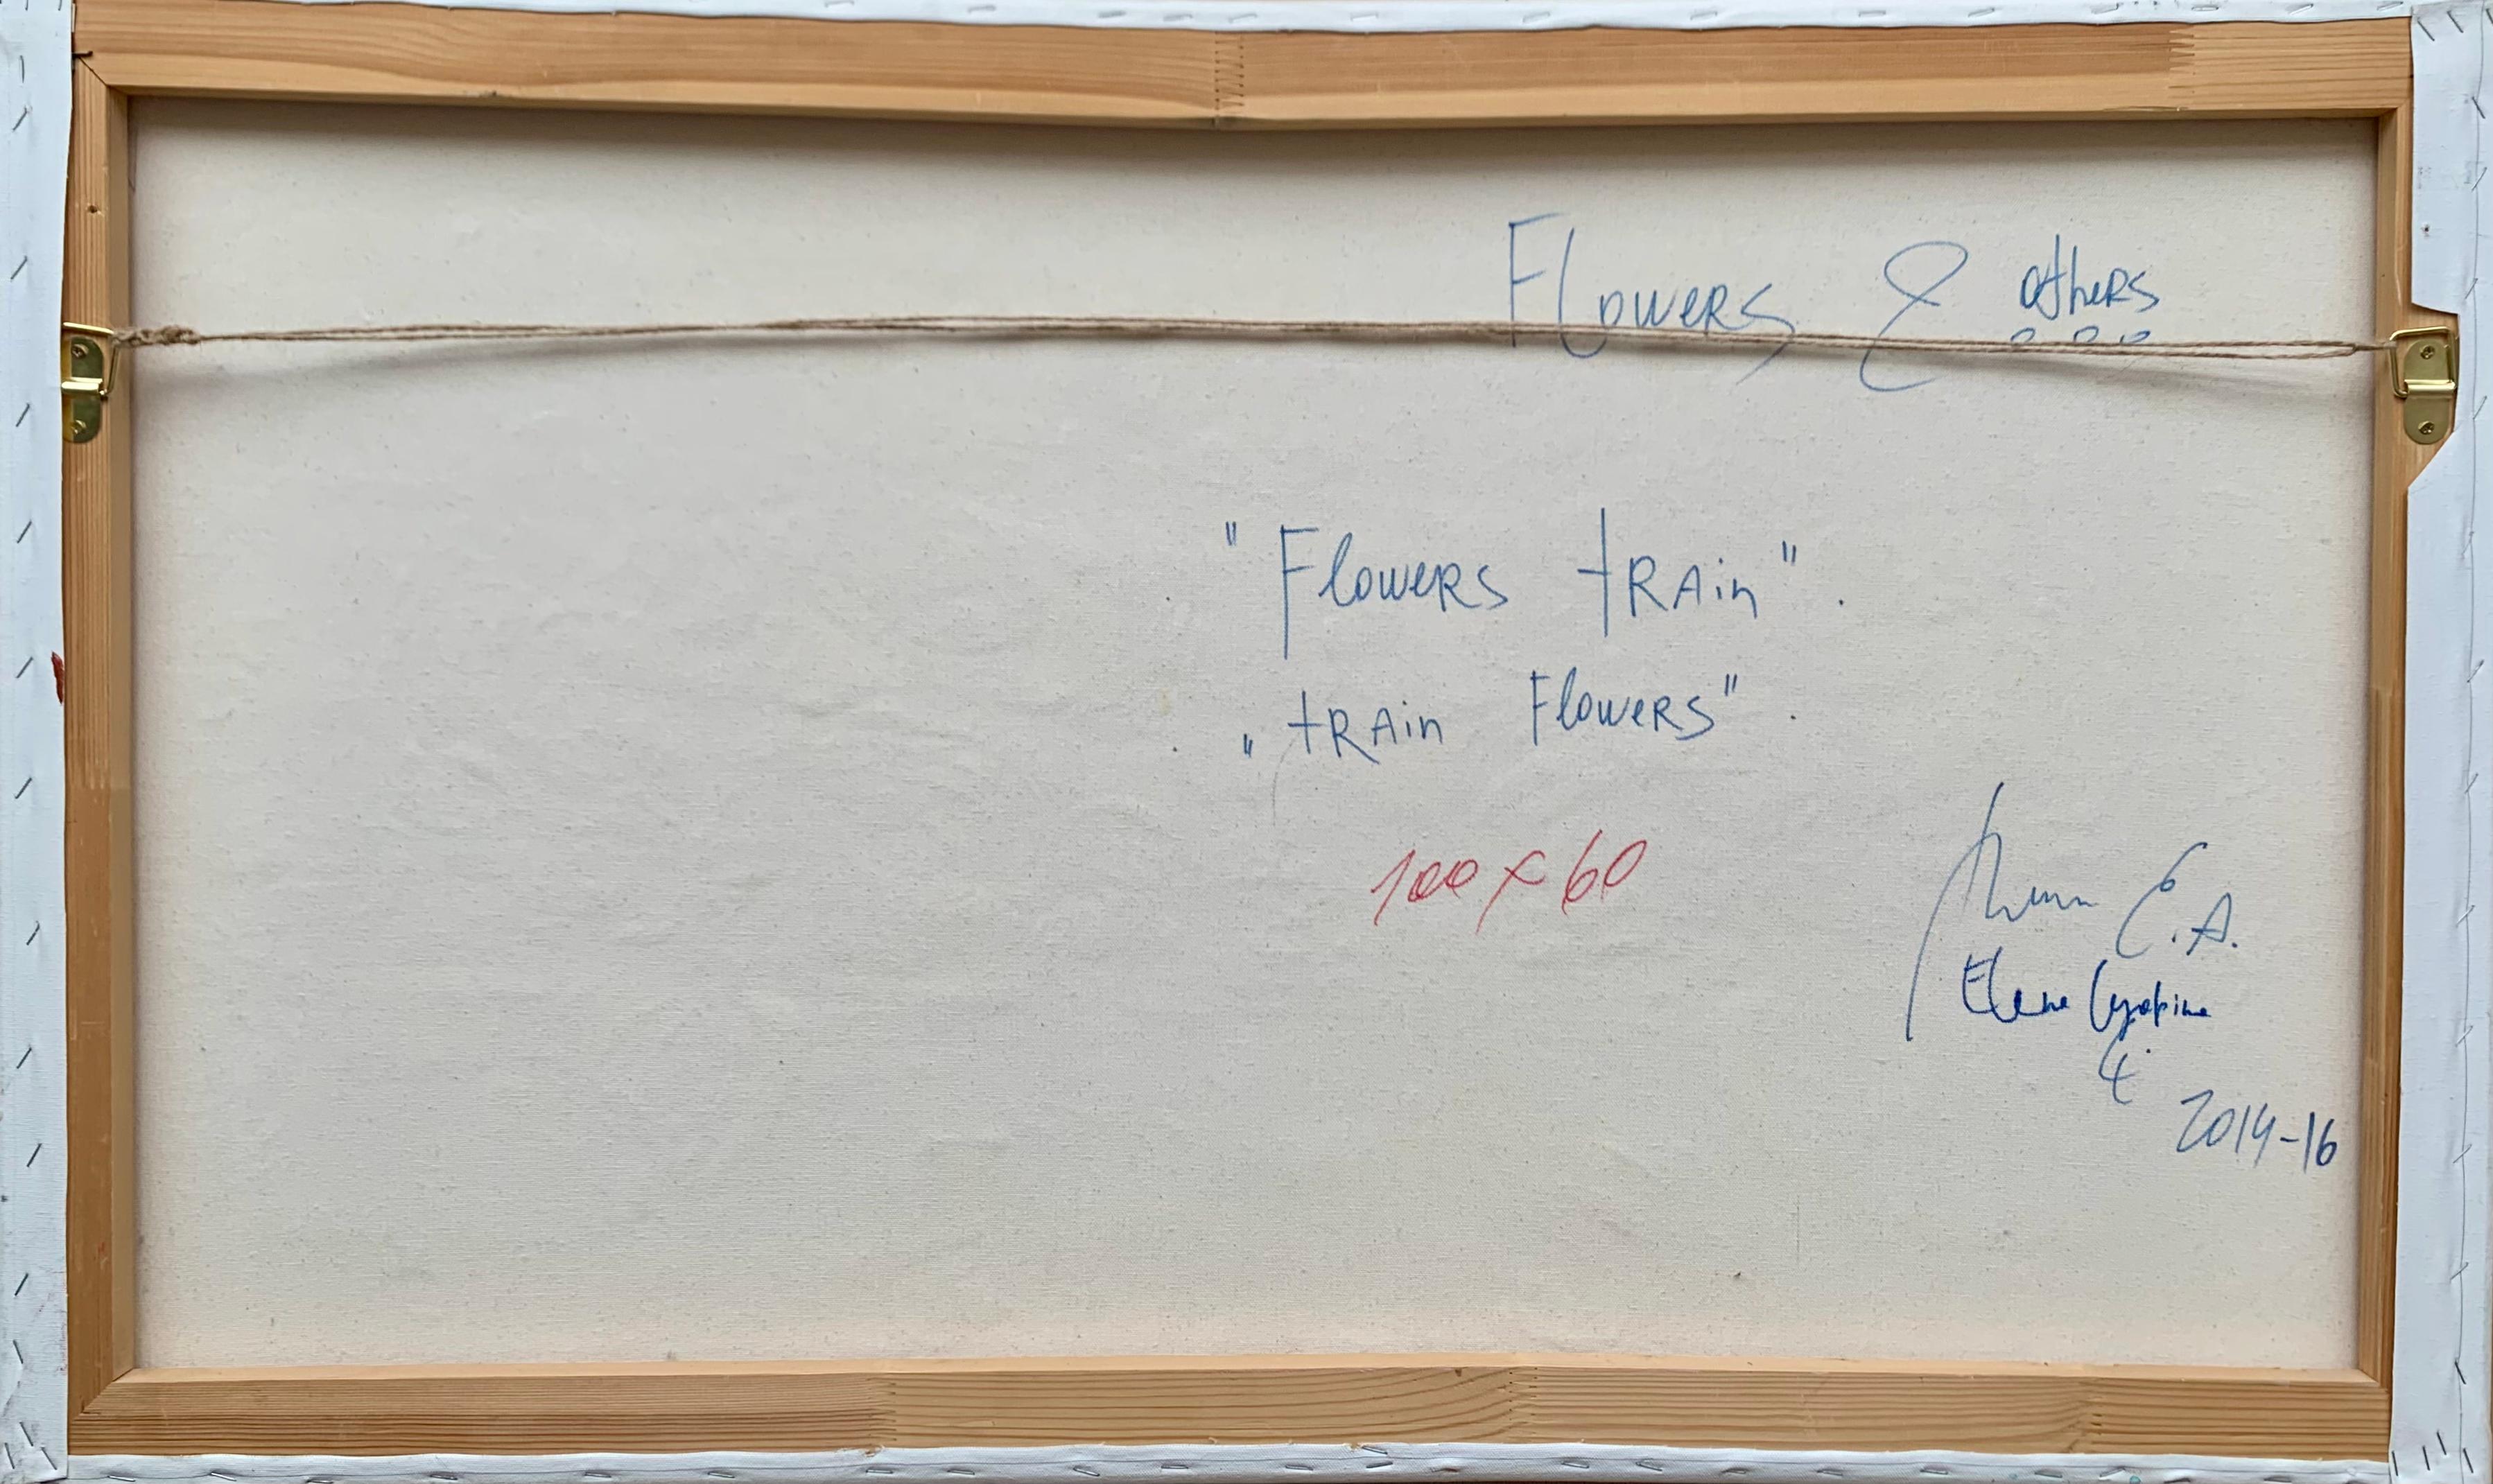 Flowers & others
"Flowers train".
„train Flowers".
100 x 60
E.A.
Elena Lyapina
2014-16